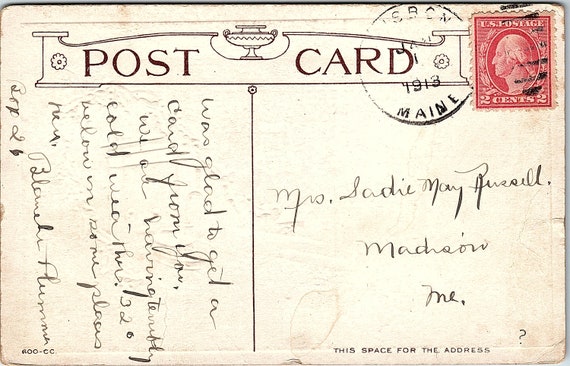 POST CARD
JAN
1918
MAINE
U.S. POSTAGE
2 CENTS 2
was glad to get a
card from you.
we are having terribly
cold weather. 32°
below in some places
Mrs. Blanche Plummer
Box 26
Mrs. Sadie May Russell.
Madison
Me.
?
600-CC.
THIS SPACE FOR THE ADDRESS